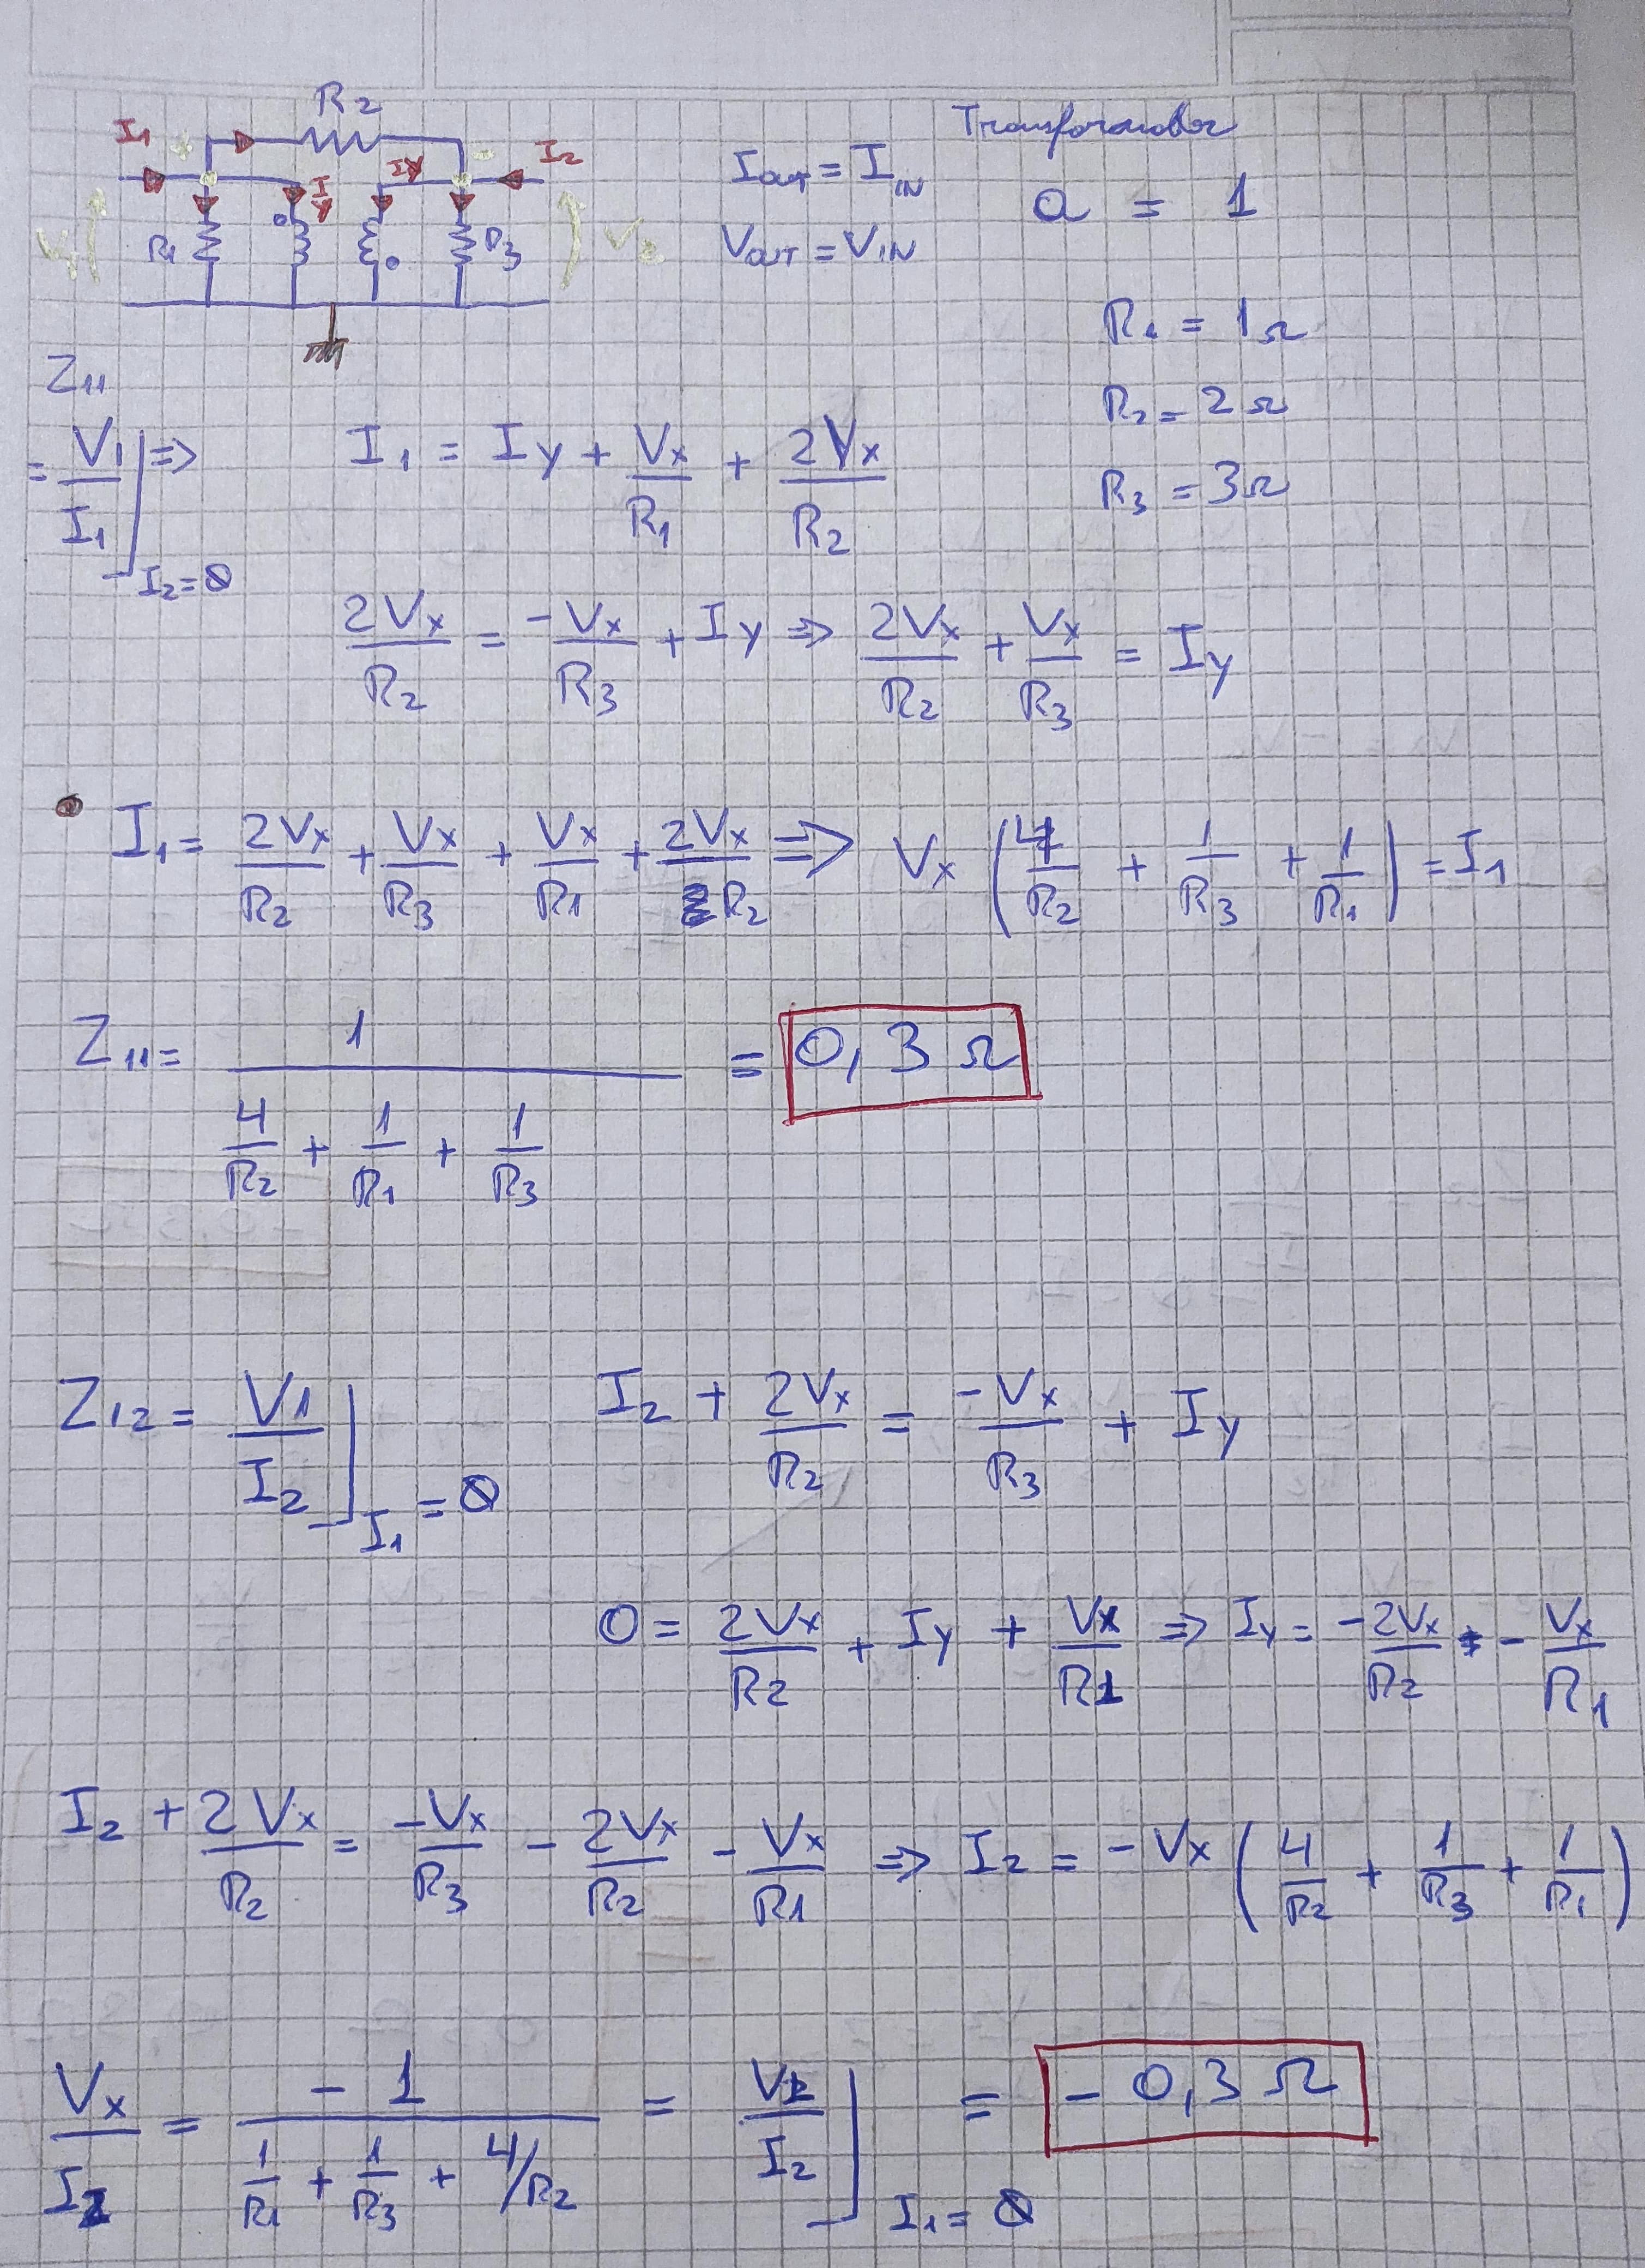 R2
Transformador
I1
IY
I2
Iout = I IN
a = 1
I
Y
V1
R1
R3
V2
Vout = VIN
R1 = 1Ω
Z11
R2 = 2Ω
= V1/I1 | I2=0 => I1 = Iy + Vx/R1 + 2Vx/R2
R3 = 3Ω
2Vx/R2 = -Vx/R3 + Iy => 2Vx/R2 + Vx/R3 = Iy
• I1 = 2Vx/R2 + Vx/R3 + Vx/R1 + 2Vx/R2 => Vx (4/R2 + 1/R3 + 1/R1) = I1
Z11 = 1/(4/R2 + 1/R1 + 1/R3) = 0,3 Ω
Z12 = V1/I2 | I1 = 0
I2 + 2Vx/R2 = -Vx/R3 + Iy
0 = 2Vx/R2 + Iy + Vx/R1 => Iy = -2Vx/R2 - Vx/R1
I2 + 2Vx/R2 = -Vx/R3 - 2Vx/R2 - Vx/R1 => I2 = -Vx (4/R2 + 1/R3 + 1/R1)
Vx/I2 = -1/(1/R1 + 1/R3 + 4/R2) = V1/I2 | I1 = 0 = -0,3 Ω